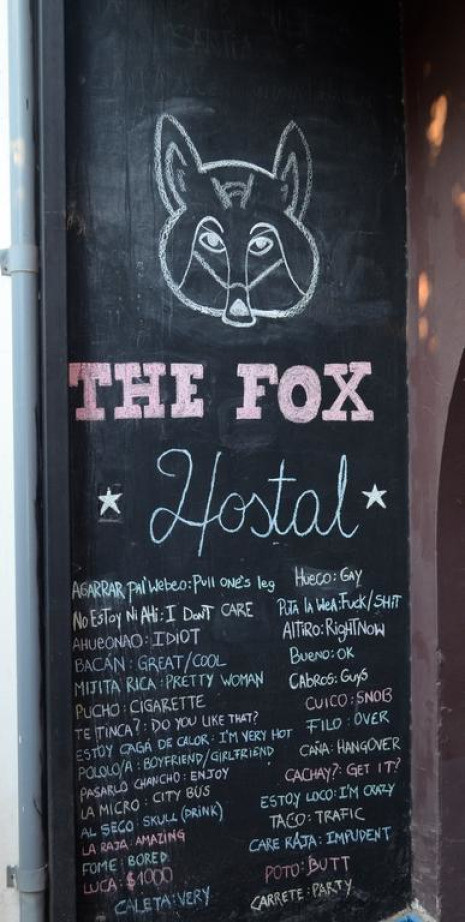 THE FOX
Hostal
AGARRAR pal Webeo: Pull one's leg
No EsToy Ni AHi: I DonT CARE
AHUEONAO: IDIOT
BACÁN: GREAT/COOL
MIJITA RICA: PRETTY WOMAN
PUCHO: CIGARETTE
TE TINCA?: DO YOU LIKE THAT?
ESTOY CAGÁ DE CALOR: I'M VERY HOT
POLOLO/A: BOYFRIEND/GIRLFRIEND
PASARLO CHANCHO: ENJOY
LA MICRO: CITY BUS
AL SECO: SKULL (DRINK)
LA RAJA: AMAZING
FOME: BORED
LUCA: $1000
CALETA: VERY
HuEco: GAY
PuTa la WeA: Fuck/SHiT
AlTiro: RighTNow
BuENO: OK
CABROS: GuyS
CUICO: SNOB
FILO: OVER
CAÑA: HANGOVER
CACHAY?: GET IT?
ESTOY LOCO: I'M CRAZY
TACO: TRAFIC
CARE RAJA: IMPUDENT
POTO: BUTT
CARRETE: PARTY